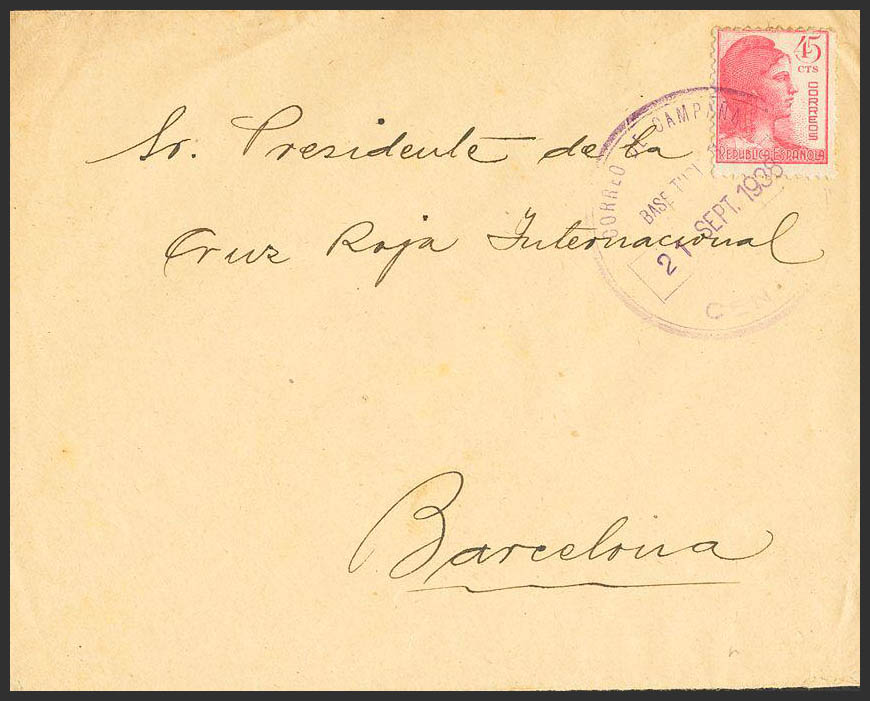 45
CTS
CORREOS
REPUBLICA ESPAÑOLA
CORREO DE CAMPAÑA
BASE
21 SEPT. 1938
Sr. Presidente de la
Cruz Roja Internacional
Barcelona